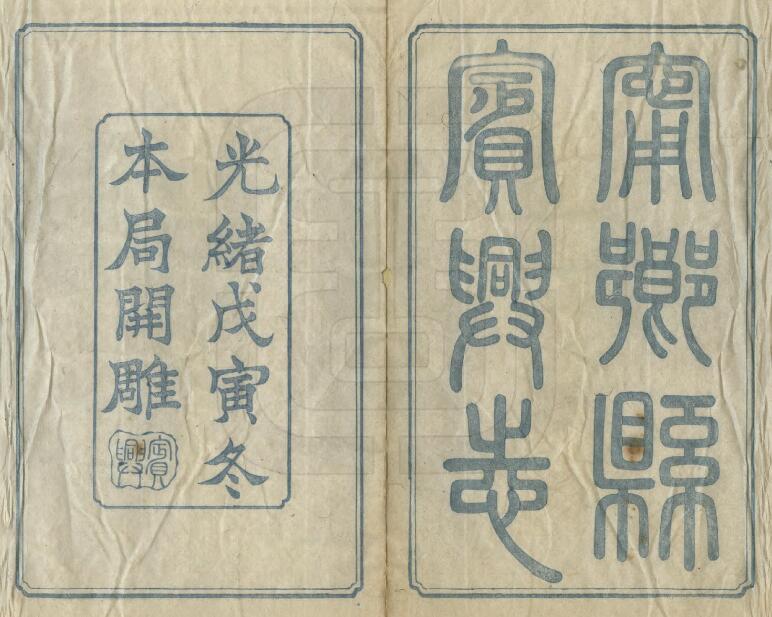 甯鄉縣
賓興志
光緒戊寅冬
本局開雕
賓興